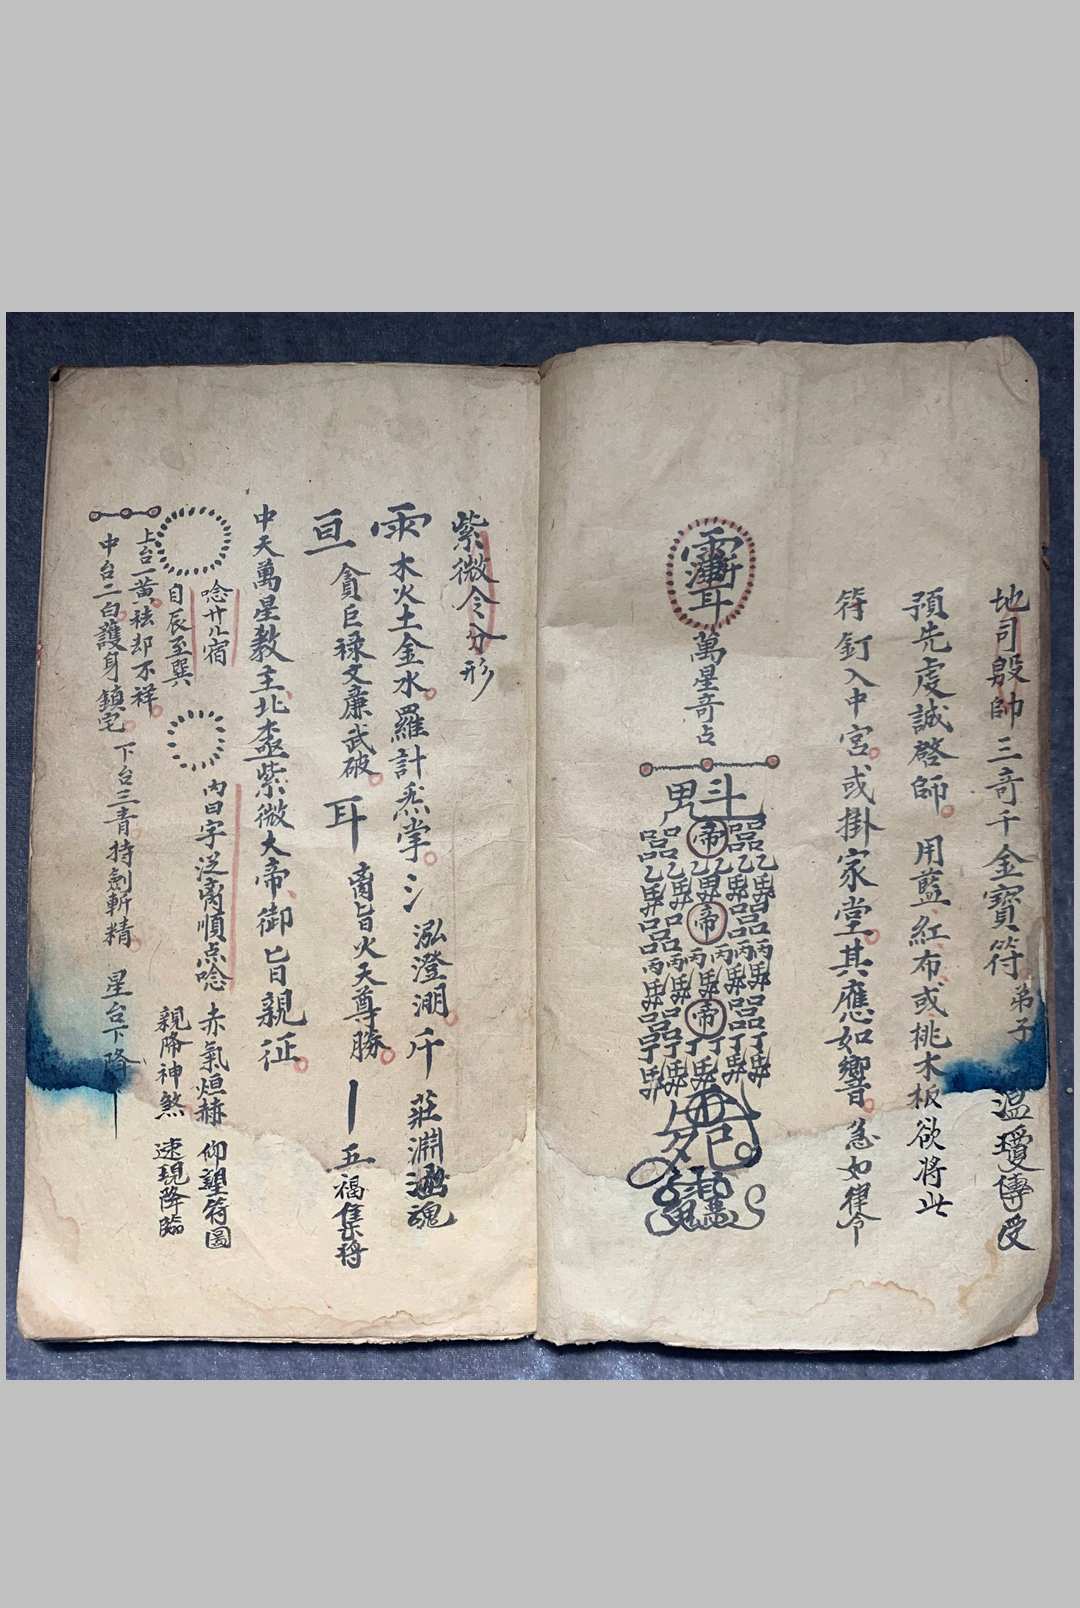 地司殷帥三奇千金寶符 弟子 溫瓊傳受
預先虔誠啓師。用藍、紅布、或桃木板欲將此
符釘入中宮。或掛家堂。其應如響。急如律令
萬星奇占
斗
帝
帝
帝
紫微令分形
木火土金水。羅計炁孛。氵泓澄淵。斤 莊淵 魂
亘 貪巨祿文廉武破。耳 啇旨火天尊勝。丨 五福集將
中天萬星教主北極紫微大帝、御旨親征。
唸廿八宿 內曰字泛离順点唸 赤氣烜赫 仰望符圖
自辰至巽 親降神煞 速現降臨
上台一黃、祛却不祥。
中台二白護身鎮宅。下台三青持劍斬精。星台下降